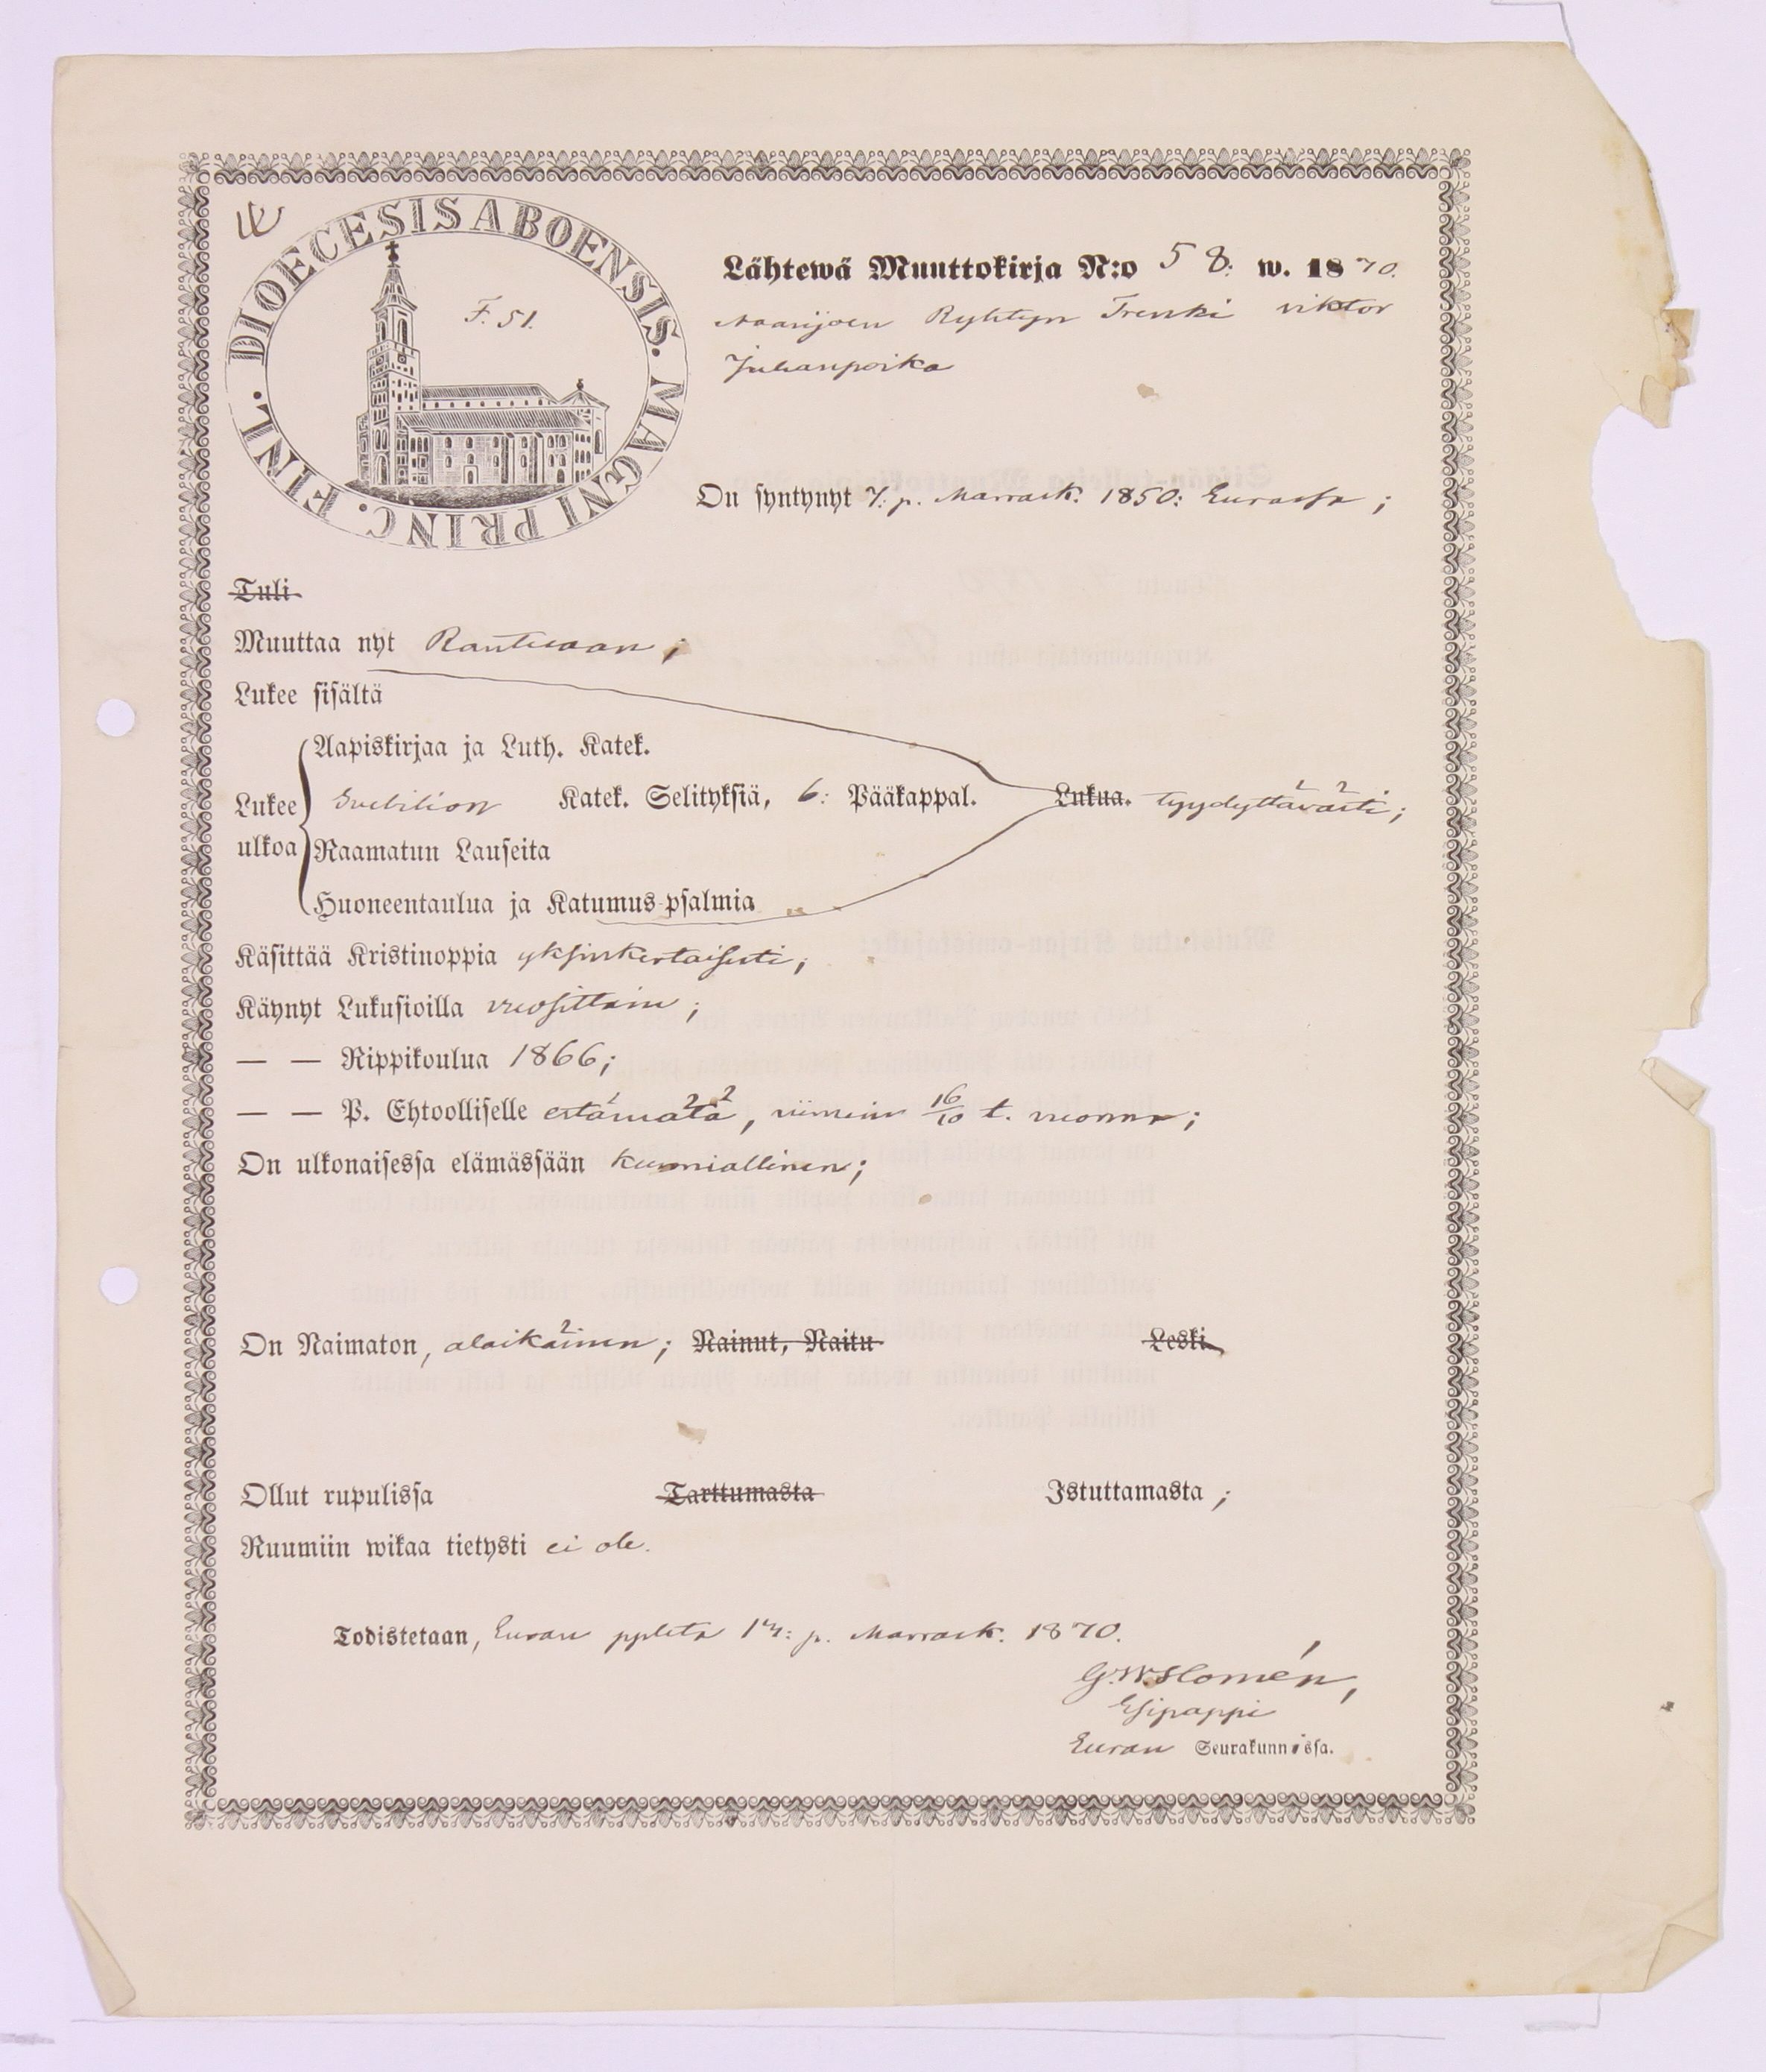 DIOECESIS ABOENSIS. MAGNI PRINC. FINL.
F. 51.
Lähtewä Muuttokirja N:o 58: w. 1870.
Trenki Viktor
Juhanpoika
On syntynyt 7: p. Marrask. 1850: Eurassa;
Tuli
Muuttaa nyt
Lukee sisältä
Aapiskirjaa ja Luth. Katek.
Lukee Svebilion Katek. Selityksiä, 6: Pääkappal. Lukua. tyydyttävästi;
ulkoa Raamatun Lauseita
Huoneentaulua ja Katumus-psalmia
Käsittää Kristinoppia yksinkertaisesti;
Käynyt Lukusioilla vuosittain;
— — Rippikoulua 1866;
— — P. Ehtoolliselle estämätä, viimein 16/10 t. vuonna;
On ulkonaisessa elämässään kunniallinen;
On Naimaton, alaikäinen; Nainut, Naitu Leski
Ollut rupulissa Tarttumasta Istuttamasta;
Ruumiin wikaa tietysti ei ole.
Todistetaan, Euran p. Marrask. 1870.
Esipappi
Euran Seurakunnassa.